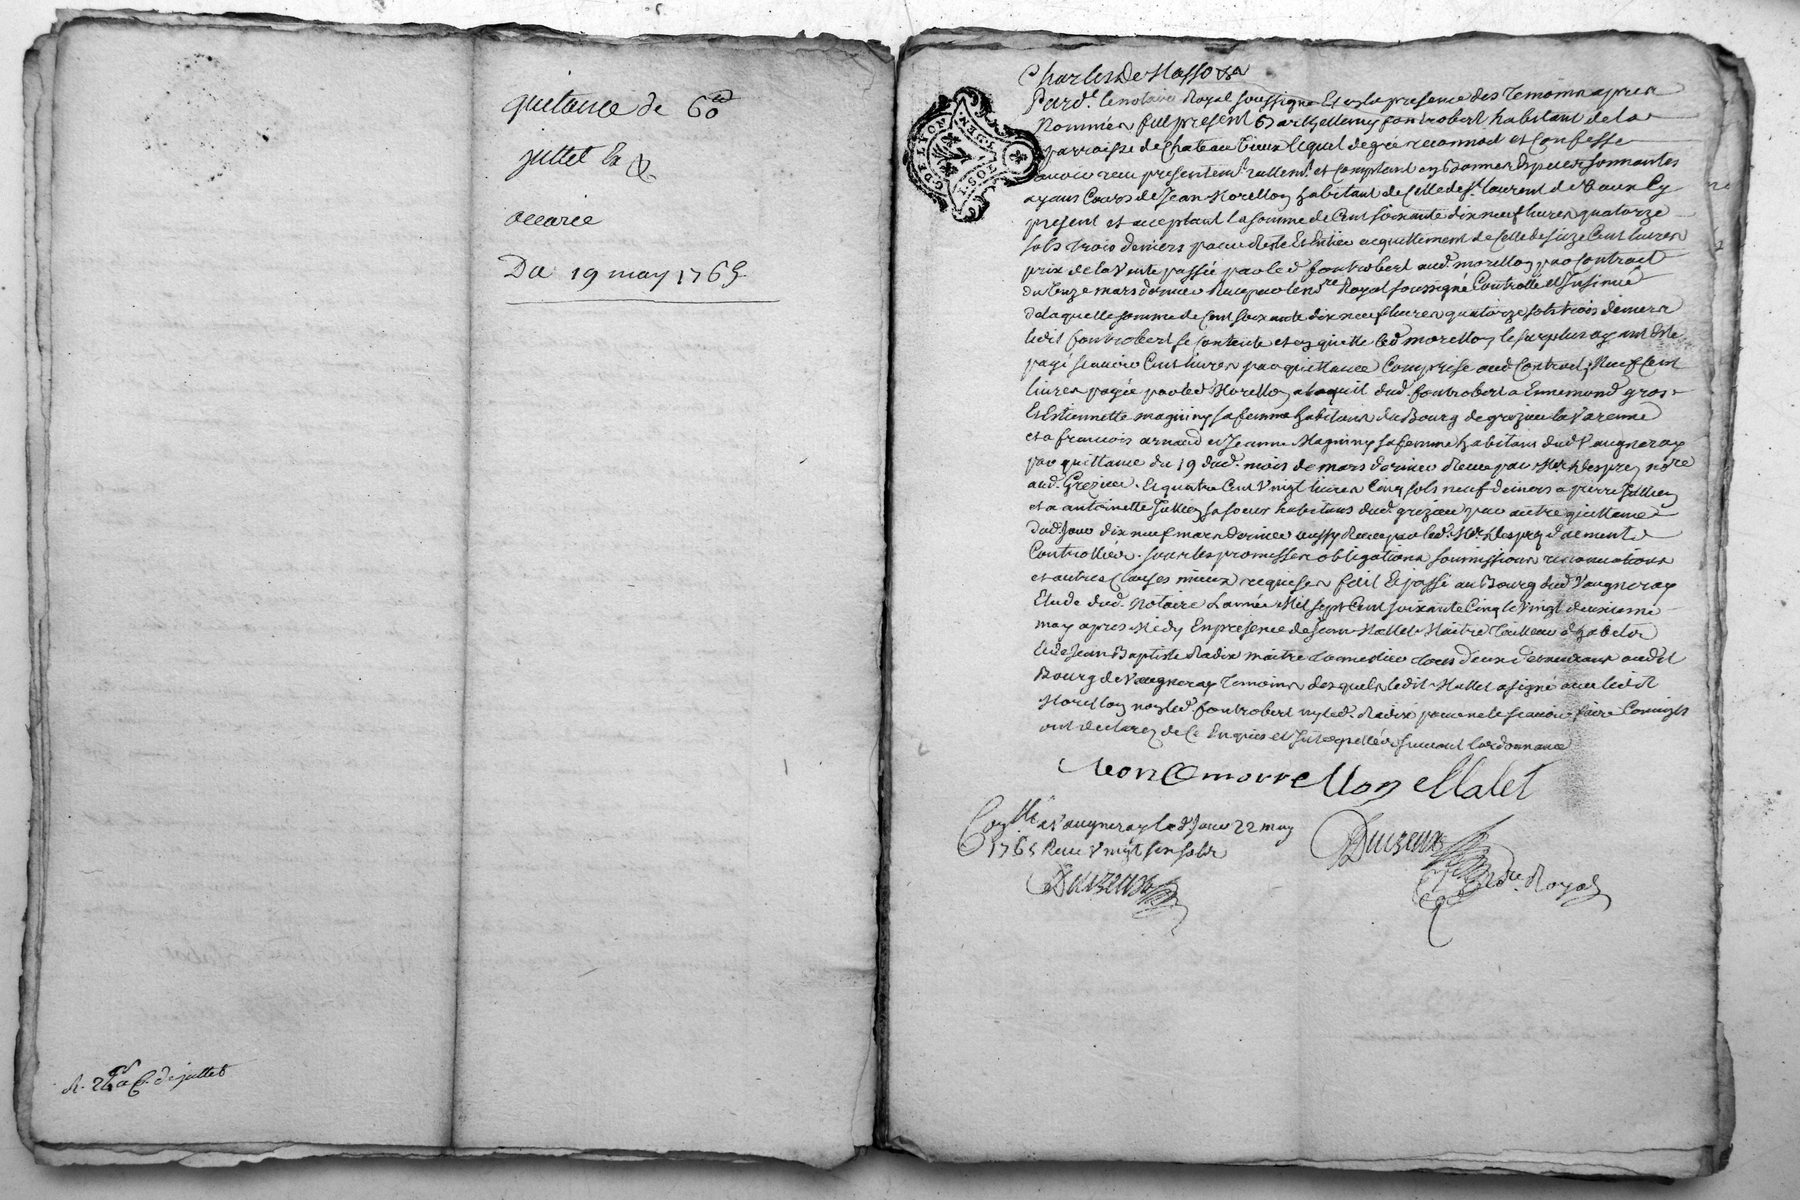 quitance de 60
juttet
Du 19 may 1765
de juttet
Charles de Masso
Pard.t le notaire Royal soussigné Et en la presence des temoins apres
Nommés fut present Barthellemy fontrobert habitant de la
parroisse de Chateau Vieux lequel de gré reconnoit et Confesse
avoir receu presentem.t reallem.t et Comptant en Bonnes Especes sonnantes
ayans Cours de Jean Morellon habitant de Celle de S.t laurent de Vaux Cy
present et acceptant la somme de Cent soixante dix neuf livres quatorze
sols trois deniers pour Reste Et Entier acquittement de Celle de seize Cent livres
prix de la Vente passée par led fontrobert aud. morellon par Contract
du mars dernier Receu par le no.re Royal soussigné Controllé et Insinué
de laquelle somme de Cent soixante dix neuf livres quatorze sols trois deniers
ledit fontrobert se Contente et en quitte led morellon le surplus ayant Eté
payé scavoir Cent livres par quittance Comprise aud Contract, Neuf Cent
livres payée par led Morellon a lacquit dud. fontrobert a Ennemond gros
Et Estiennette magniny sa femme habitans du Bourg de grezieu la Varenne
et a francois arnaud et Jeanne Magniny sa femme habitans dud Vaugneray
par quittance du 19 dud. mois de mars dernier Receu par M.e no.re
aud. Grezieu. Et quatre Cent Vingt livres Cinq sols neuf deniers a pierre Jullien
et a antoinette Jullien sa soeur habitans dud. grezieu par autre quittance
dud. Jour dix neuf mars dernier aussy Receu par led. M.e duement
Controllées. sous les promesses obligations soumissions renonciations
et autres Clauses mieux requises fait Et passé au Bourg dud Vaugneray
Etude dud. Notaire L'année Mil sept Cent soixante Cinq le Vingt deuxieme
may apres Midy En presence de Jean Mallet Maitre tailleur d'habits
Et de Jean Baptiste Radix maitre Cordonnier tous deux demeurans audit
Bourg de Vaugneray temoins desquels ledit Mallet a signé avec ledit
Morellon non led. fontrobert ny led. Radix pour ne le scavoir faire Comm'ils
ont declarez de Ce Enquis et Interpellés suivant l'ordonnance
morrellon Malet
Con.llé a Vaugneray led Jour 22 may
1765 Receu Vingt six sols
Duizeux
No.re Royal
Duizeux